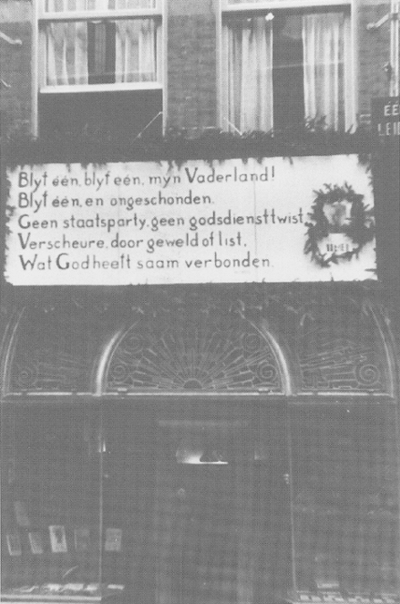 Blyf één, blyf één, myn Vaderland!
Blyf één, en ongeschonden.
Geen staatsparty, geen godsdiensttwist,
Verscheure, door geweld of list,
Wat God heeft saam verbonden.